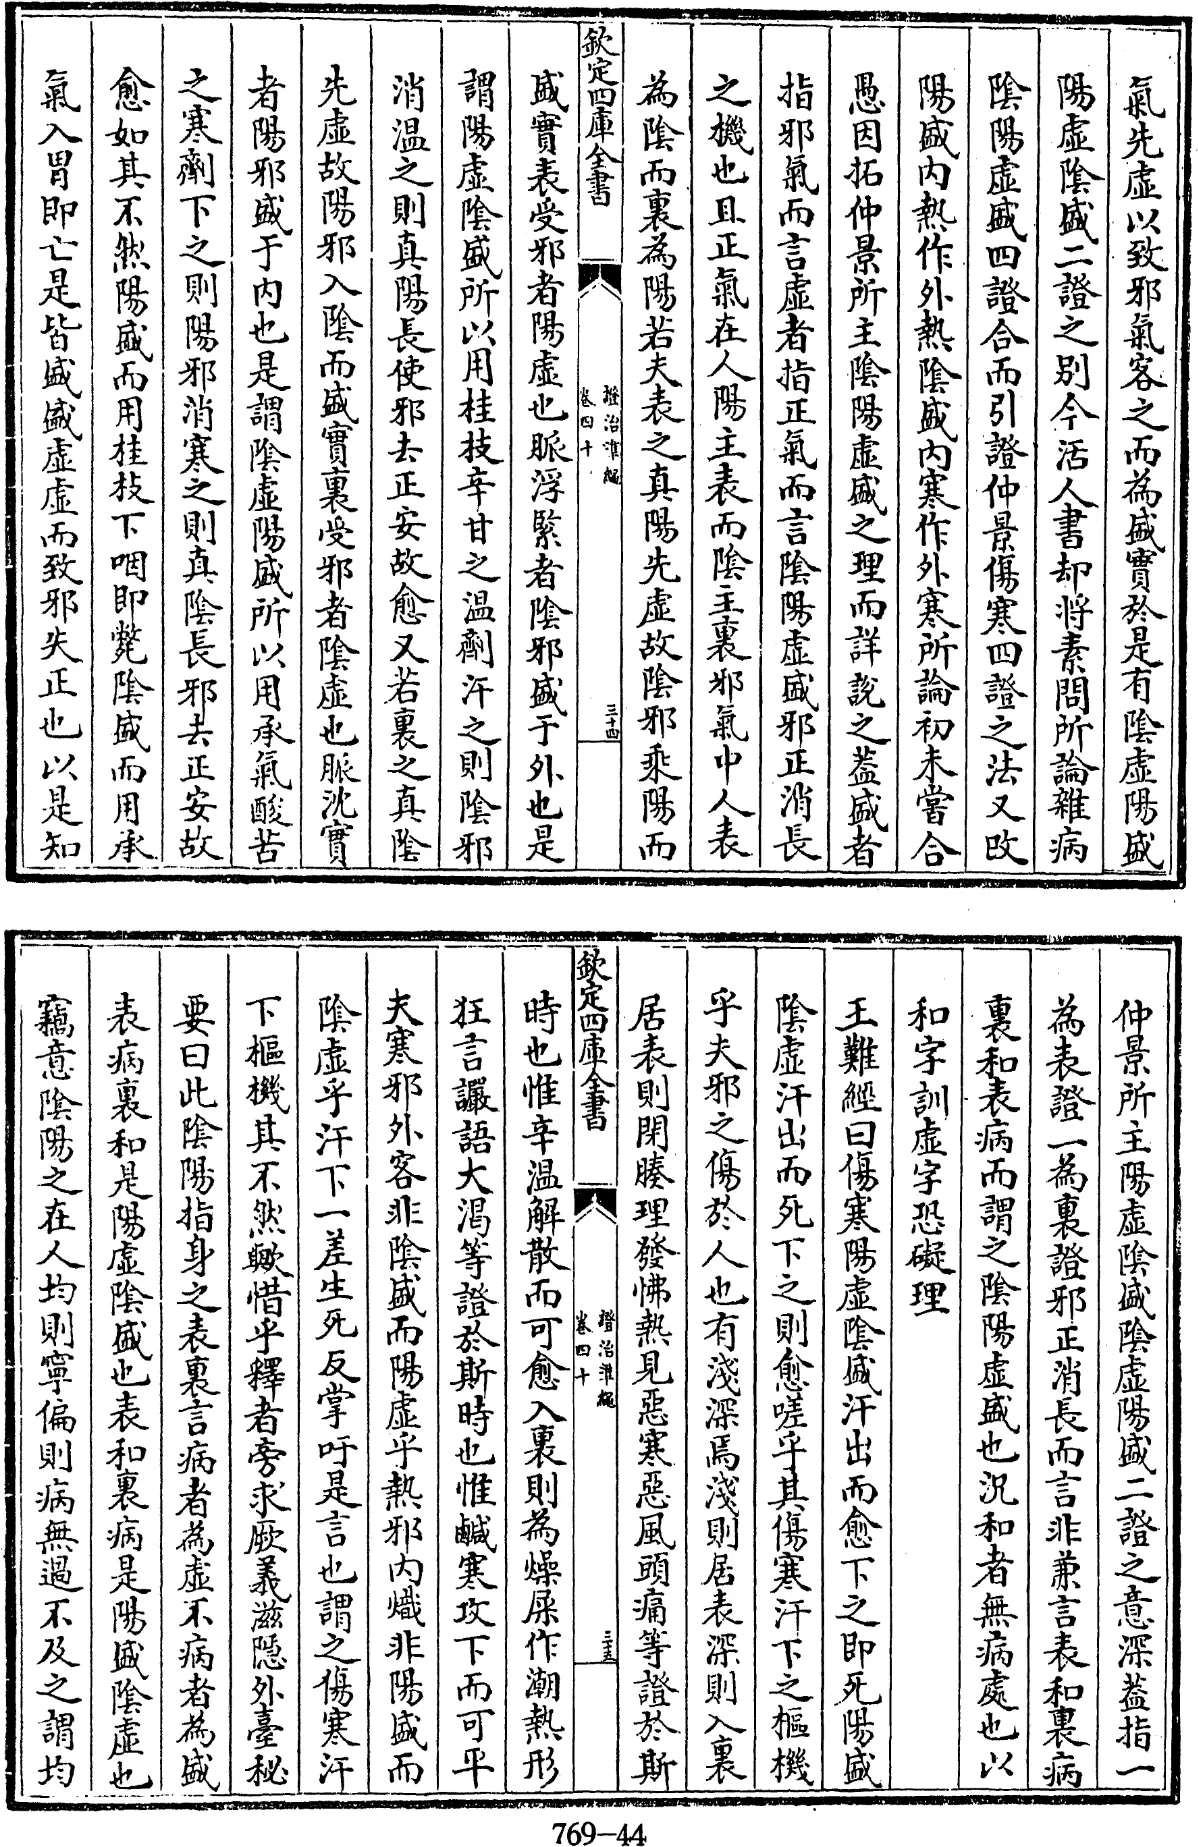 氣先虛以致邪氣客之而為盛實於是有陰虛陽盛
陽虛陰盛二證之別今活人書却將素問所論雜病
陰陽虛盛四證合而引證仲景傷寒四證之法又改
陽盛内熱作外熱陰盛内寒作外寒所論初未嘗合
愚因拓仲景所主陰陽虛盛之理而詳說之葢盛者
指邪氣而言虛者指正氣而言陰陽虛盛邪正消長
之機也且正氣在人陽主表而陰主裏邪氣中人表
為陰而裏為陽若夫表之真陽先虛故陰邪乘陽而
欽定四庫全書
證治準繩
卷四十
三十四
盛實表受邪者陽虛也脈浮緊者陰邪盛于外也是
謂陽虛陰盛所以用桂枝辛甘之温劑汗之則陰邪
消温之則真陽長使邪去正安故愈又若裏之真陰
先虛故陽邪入陰而盛實裏受邪者陰虛也脈沈實
者陽邪盛于内也是謂陰虛陽盛所以用承氣酸苦
之寒劑下之則陽邪消寒之則真陰長邪去正安故
愈如其不然陽盛而用桂枝下咽即斃陰盛而用承
氣入胃即亡是皆盛盛虛虛而致邪失正也以是知
仲景所主陽虛陰盛陰虛陽盛二證之意深葢指一
為表證一為裏證邪正消長而言非兼言表和裏病
裏和表病而謂之陰陽虛盛也況和者無病處也以
和字訓虛字恐礙理
王難經曰傷寒陽虛陰盛汗出而愈下之即死陽盛
陰虛汗出而死下之則愈嗟乎其傷寒汗下之樞機
乎夫邪之傷於人也有淺深焉淺則居表深則入裏
居表則閉腠理發怫熱見惡寒惡風頭痛等證於斯
欽定四庫全書
證治準繩
卷四十
三五
時也惟辛温解散而可愈入裏則為燥屎作潮熱形
狂言讝語大渴等證於斯時也惟鹹寒攻下而可平
夫寒邪外客非陰盛而陽虛乎熱邪内熾非陽盛而
陰虛乎汗下一差生死反掌吁是言也謂之傷寒汗
下樞機其不然歟惜乎釋者旁求厥義滋隠外臺秘
要曰此陰陽指身之表裏言病者為虛不病者為盛
表病裏和是陽虛陰盛也表和裏病是陽盛陰虛也
竊意陰陽之在人均則寧偏則病無過不及之謂均
769-44